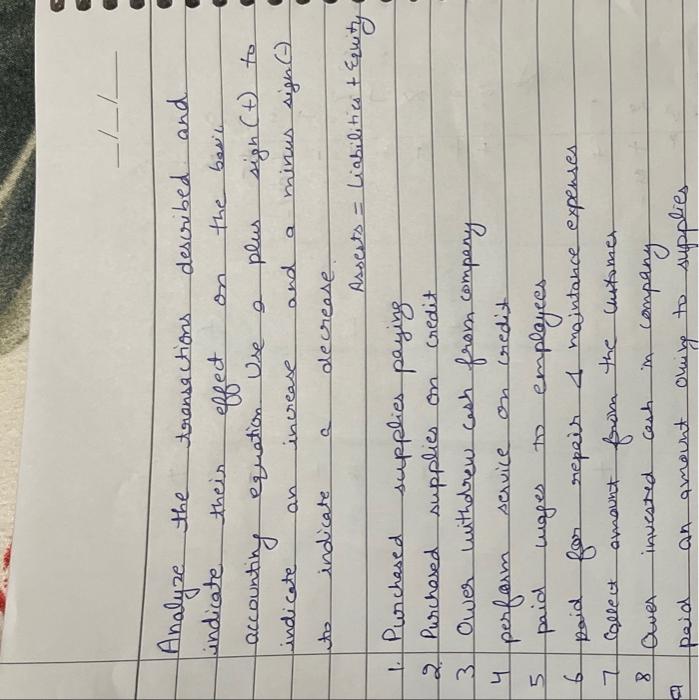 _/_/_
Analyze the transactions described and
indicate their effect on the basic
accounting equation Use a plus sign (+) to
indicate an increase and a minus sign (-)
to indicate a decrease.
Assests = Liabilities + Equity
1. Purchased supplies paying
2. Purchased supplies on credit
3 Ower withdrew cash from company
4 perform service on credit
5 paid wages to employees
6 paid for repair & maintance expenses
7 Collect amount from the customer
8 Ower invested cash in company
9 paid an amount owing to supplies